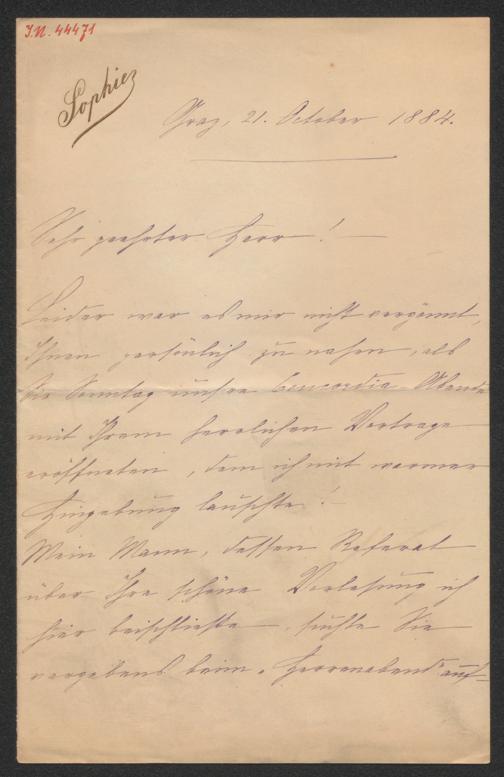 J.N. 44471
Sophie
Graz, 21. October 1884.
Sehr geehrter Herr!
Leider war es mir nicht vergönnt,
Ihnen persönlich zu nahen, als
Sie Sonntag unsre Concordia Abende
mit Ihrem herrlichen Vortrage
eröffneten, dem ich mit warmer
Hingebung lauschte!
Mein Mann, dessen Referat
über Ihre schöne Vorlesung ich
hier beischließe, suchte Sie
vergebens beim „Herrenabend" auf-